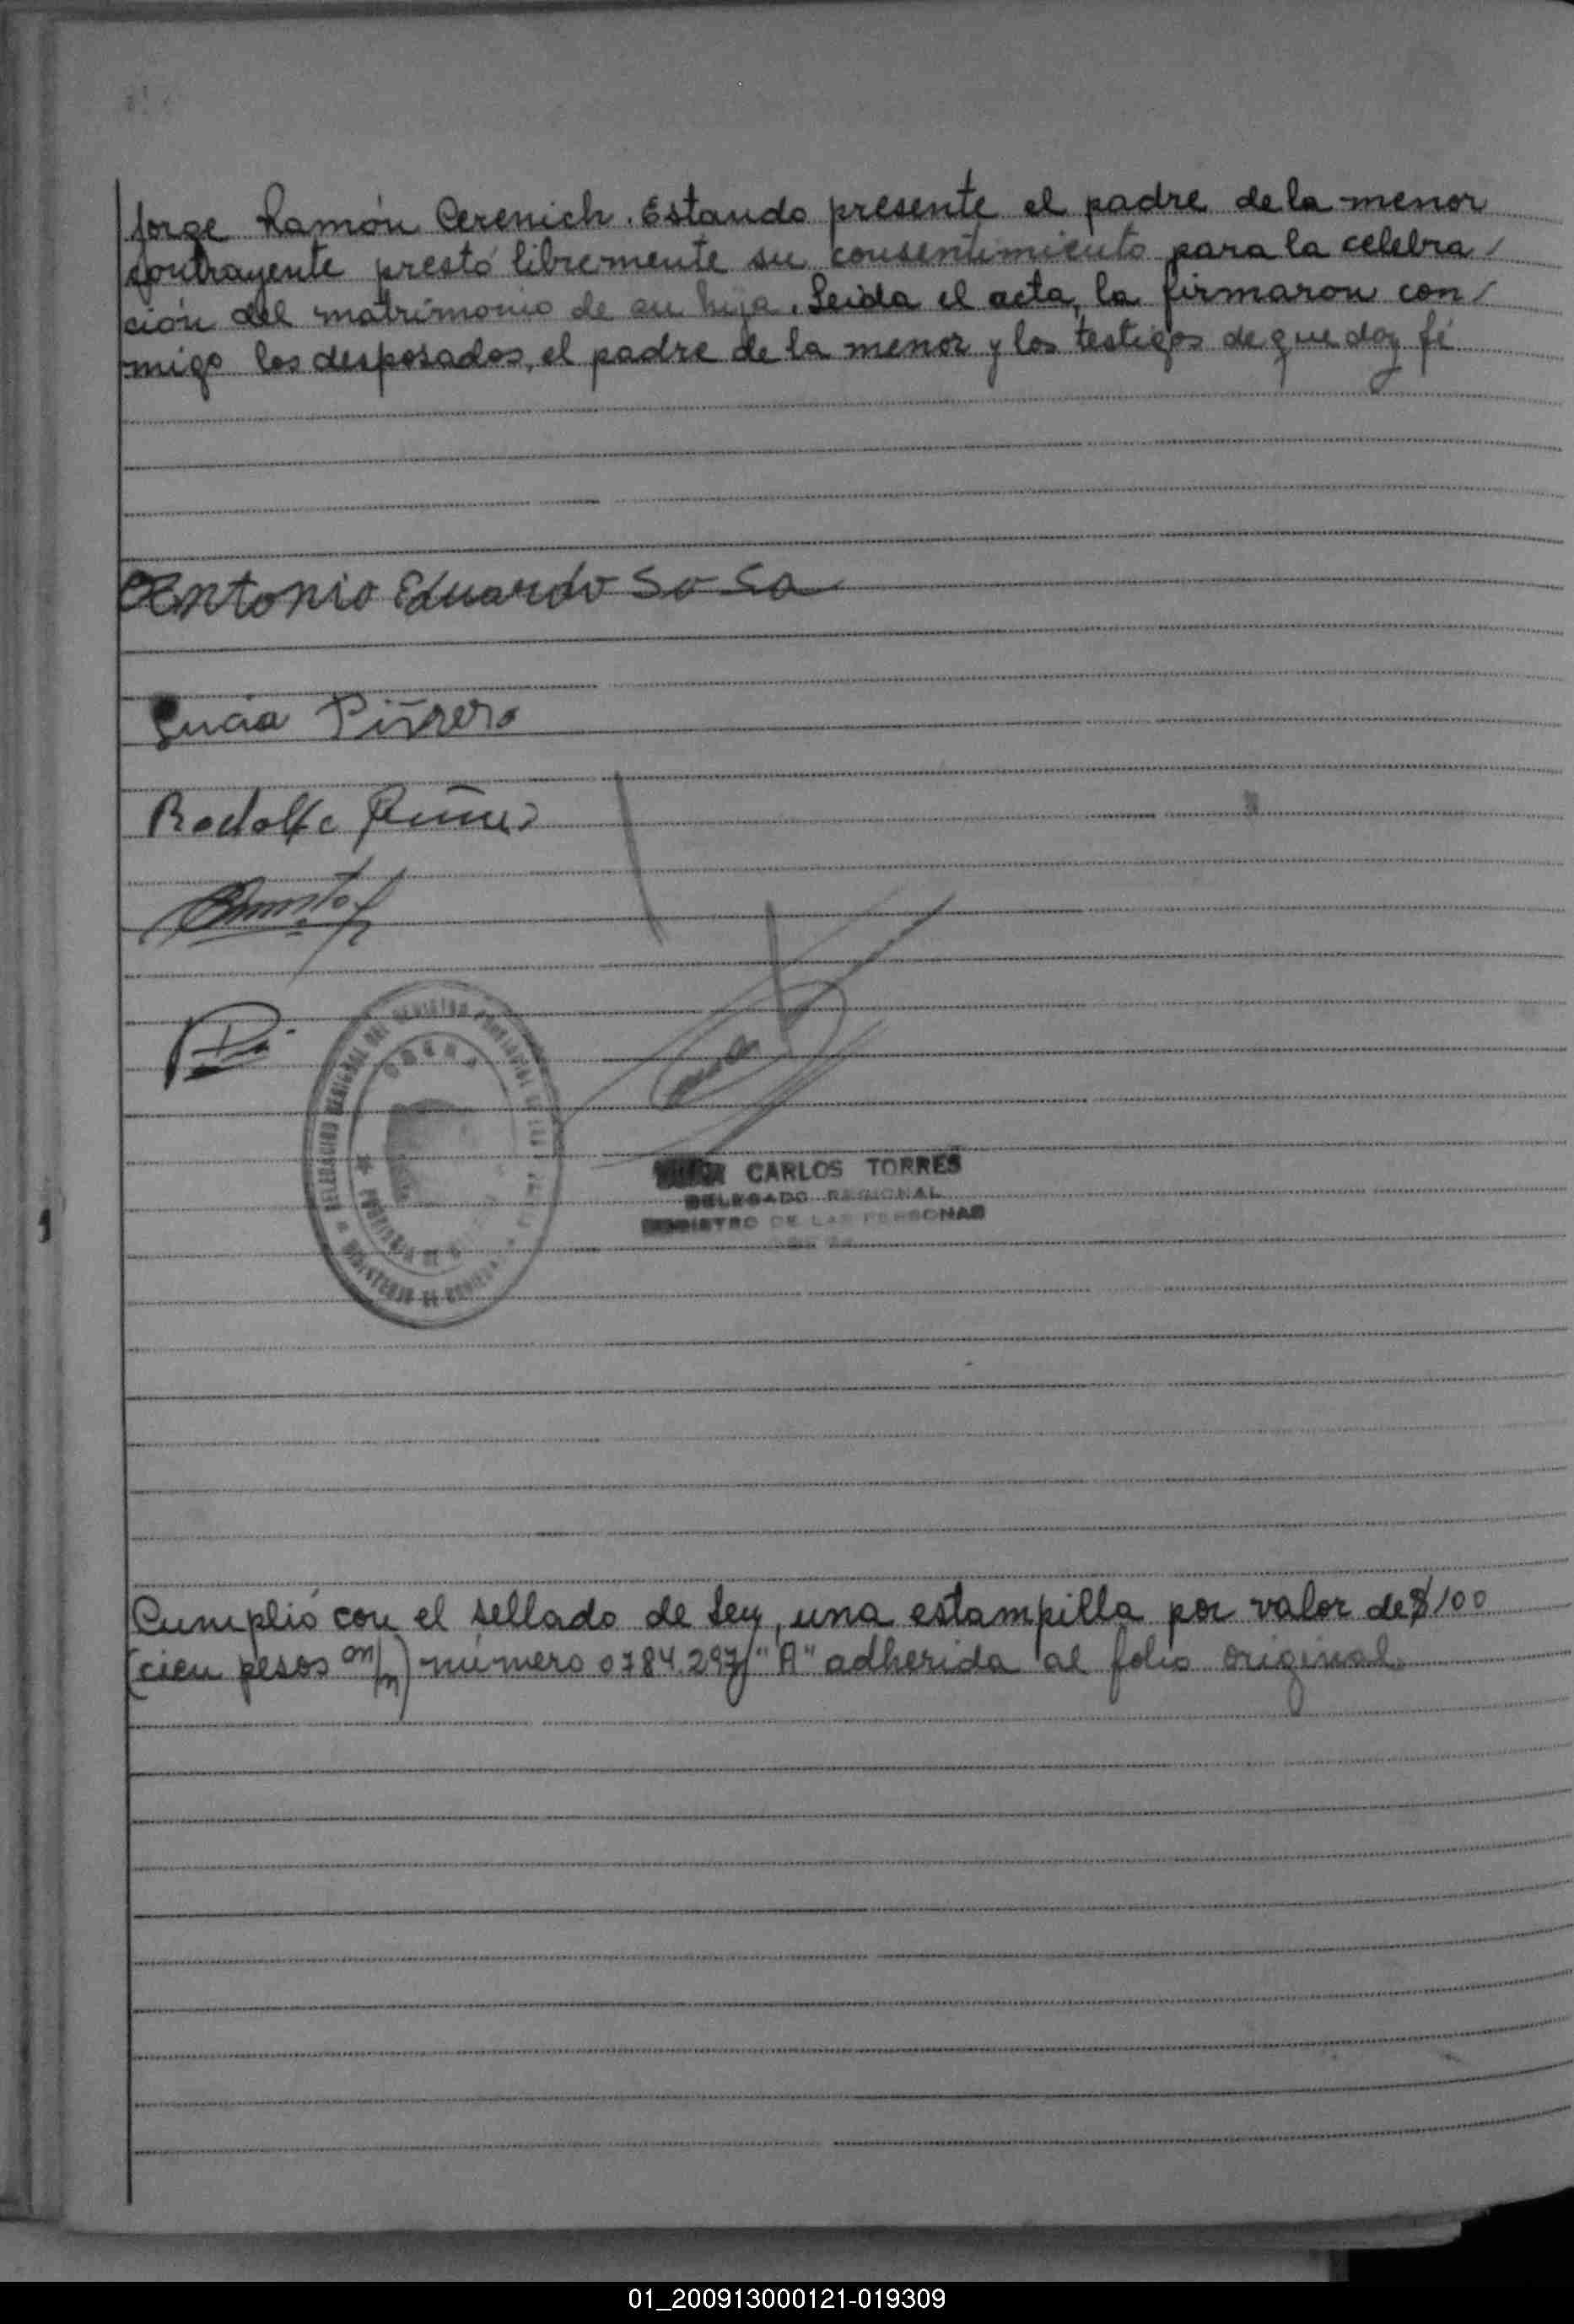 Jorge Ramón Cerenich. Estando presente el padre de la menor
contrayente prestó libremente su consentimiento para la celebra/
ción del matrimonio de su hija. Leida el acta, la firmaron con/
migo los desposados, el padre de la menor y los testigos de que doy fé
Antonio Eduardo Sosa
Lucia Piñero
Rodolfo
CARLOS TORRES
DELEGADO REGIONAL
REGISTRO DE LAS PERSONAS
Cumplió con el sellado de Ley, una estampilla por valor de $100
(cien pesos m/n) número 0784.297 "A" adherida al folio original.
01_200913000121-019309